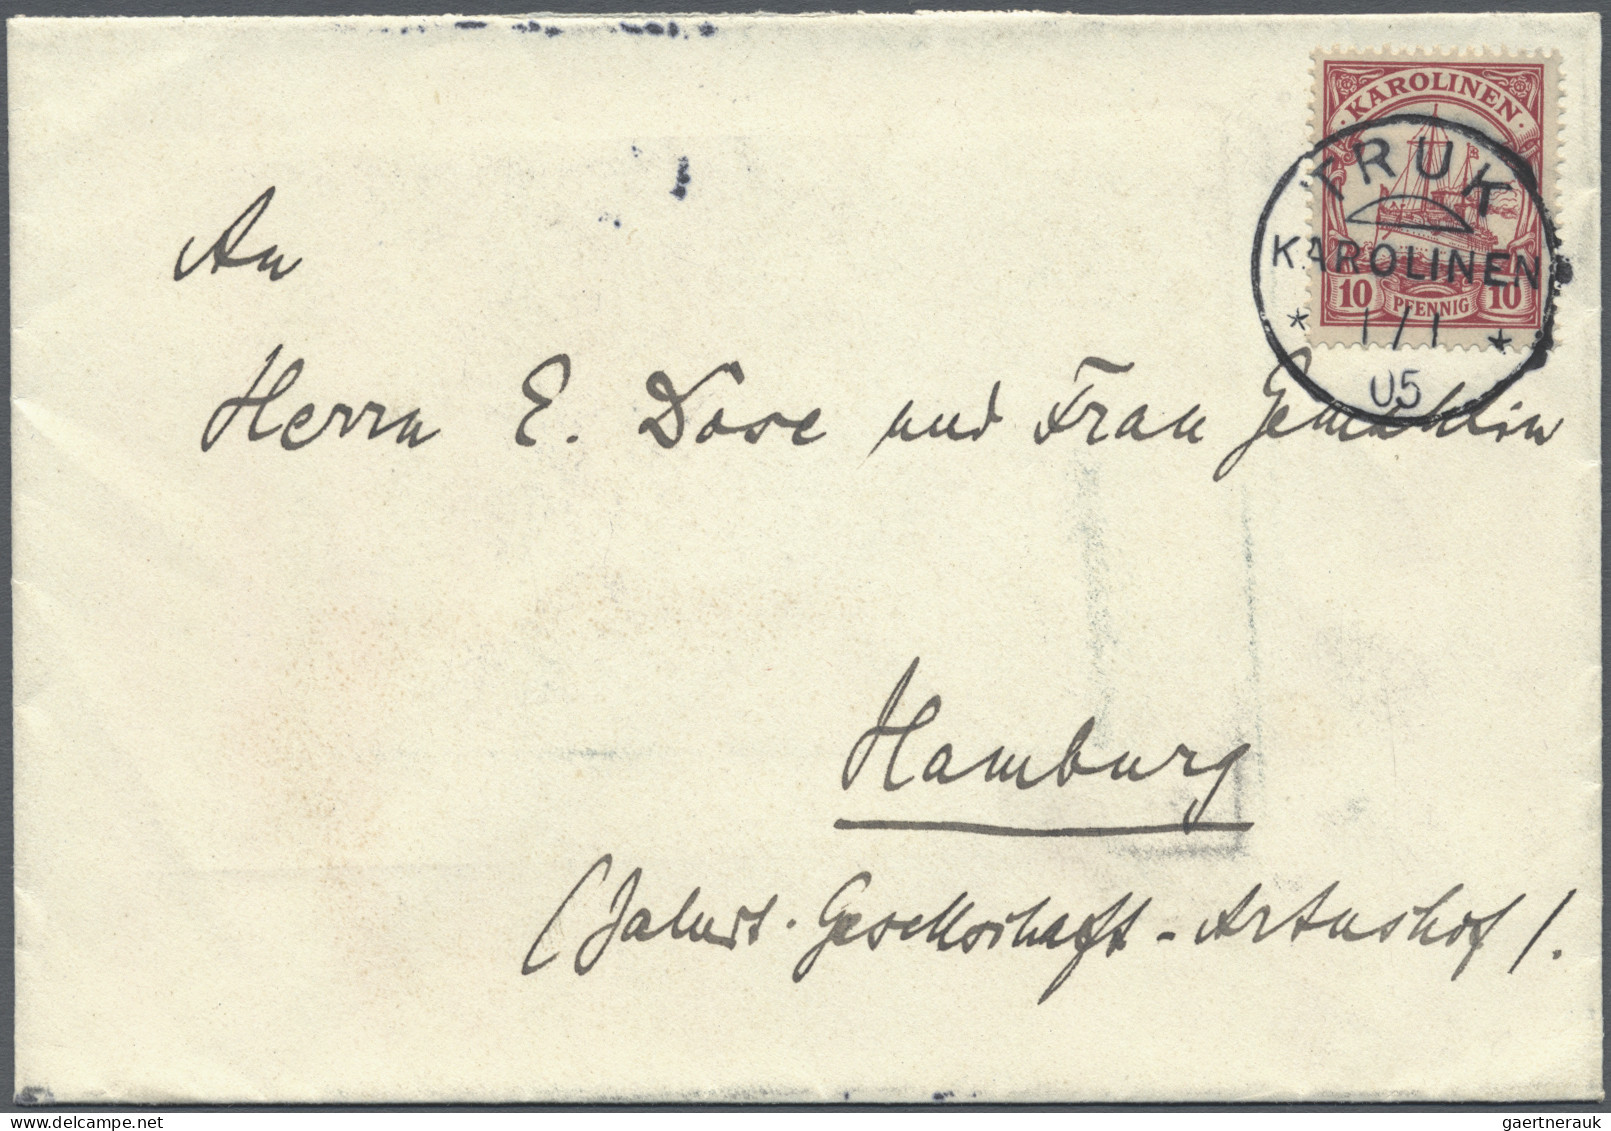 KAROLINEN
10 PFENNIG 10
TRUK
KAROLINEN
* 1/1 *
05
An
Herrn E. Dose und Frau Gemahlin
Hamburg
(Jaluit-Gesellschaft - Artushof).
gaertnerauk